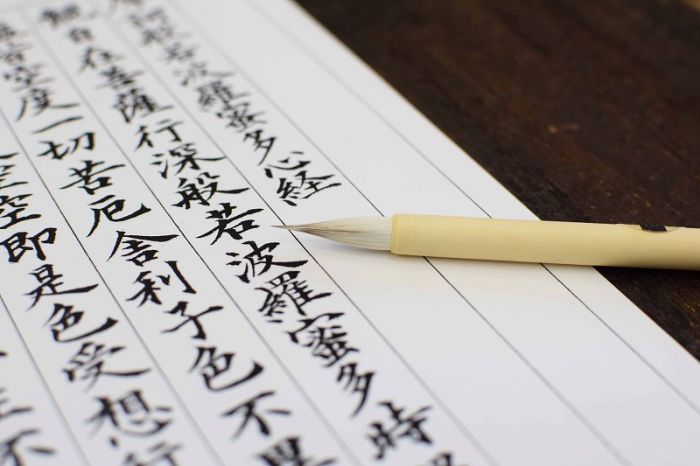 訶般若波羅蜜多心経
観自在菩薩行深般若波羅蜜多時
皆空度一切苦厄舎利子色不異
空即是色受想行
不